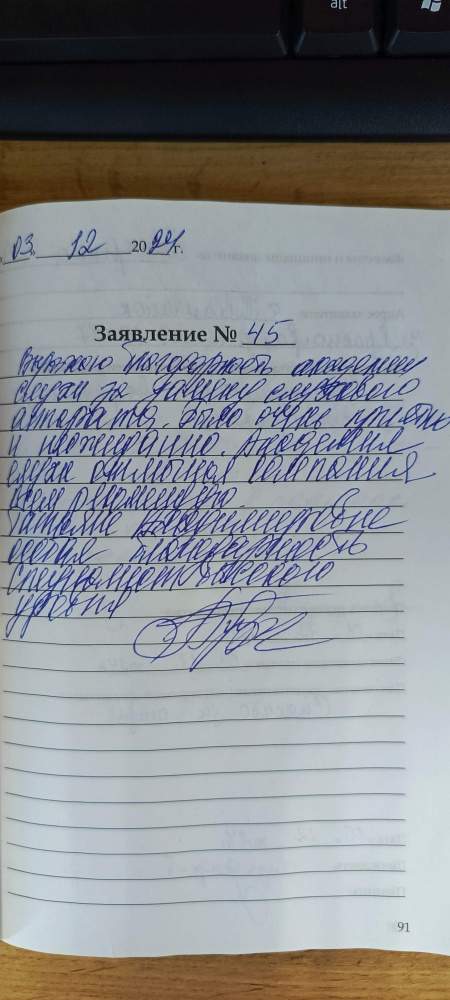 alt
„03" 12 2024г.
Заявление № 45
Выражаю благодарность академии
слуха за замену слухового
аппарата. было очень приятно
и неожиданно. Академия
слуха отличная компания
всем рекомендую.
Татьяне Владимировне
особая благодарность
специалист высокого
уровня
91